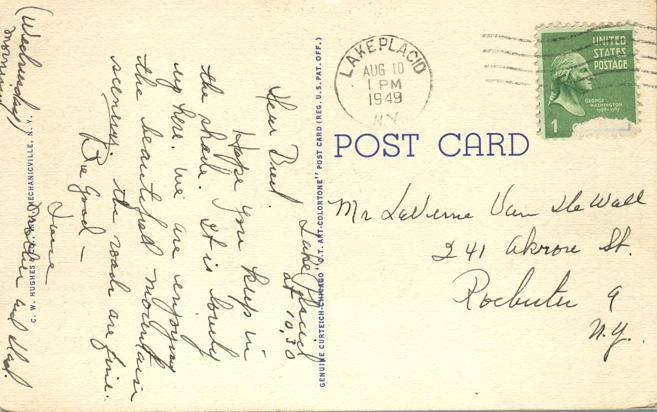 LAKE PLACID
AUG 10
1 PM
1949
N.Y.
UNITED
STATES
POSTAGE
GEORGE
WASHINGTON
1
POST CARD
Mr LaVerne Van De Walle
241 Akron St.
Rochester 9
N.Y.
GENUINE CURTEICH-CHICAGO "C.T. ART-COLORTONE" POST CARD (REG. U.S. PAT. OFF.)
Lake Placid
at 10.30
Dear
Hope you keep in
the shade. It is lovely
up here. We are enjoying
the beautiful mountain
scenery. the roads are fine.
Be Good —
Love
Mother and Dad.
C. W. HUGHES MECHANICVILLE, N. Y.
(Wednesday)
morning